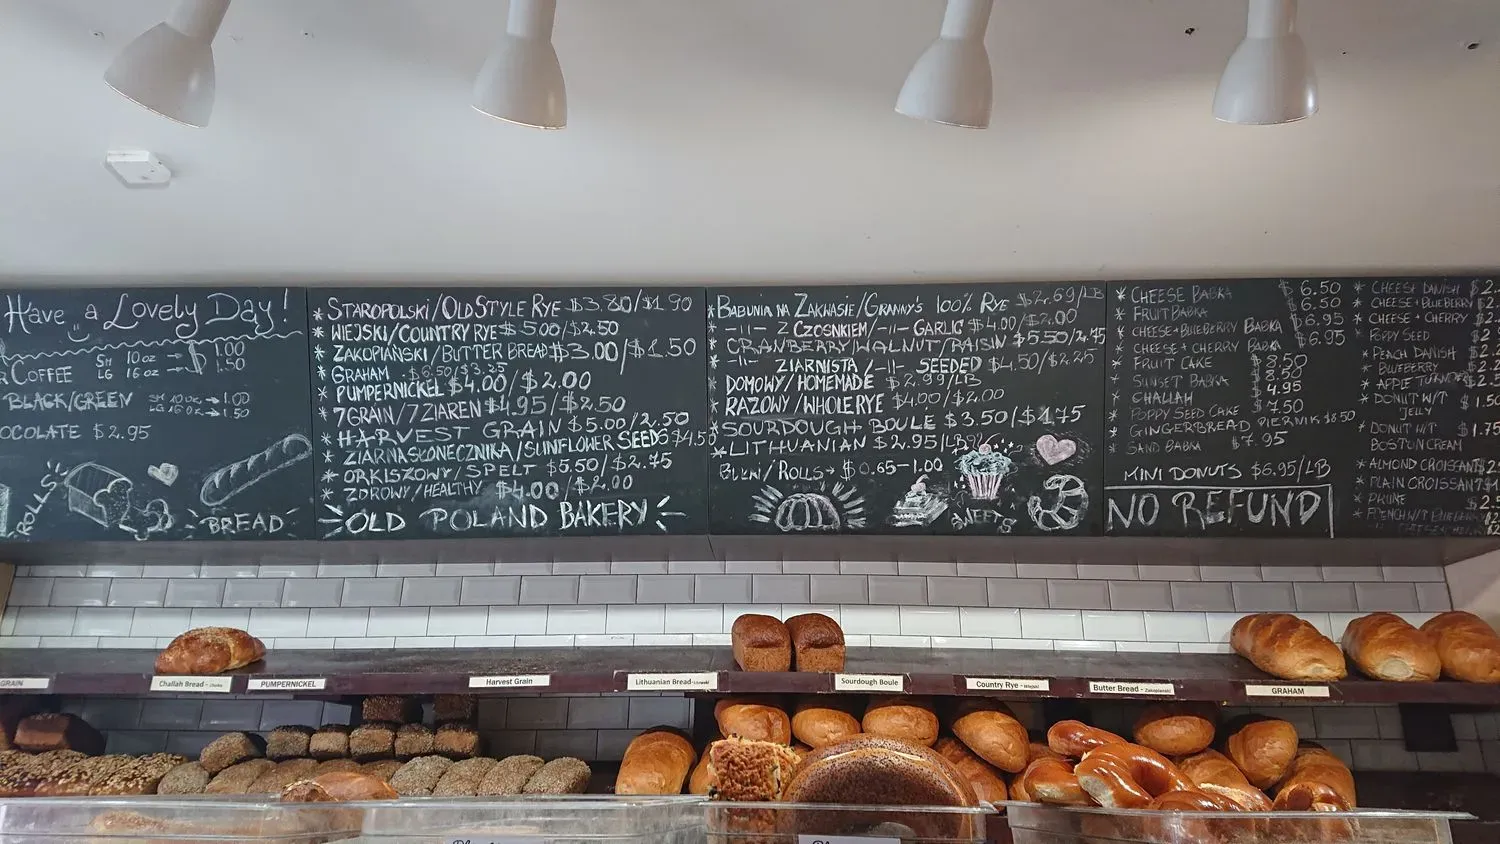 Have a Lovely Day!
SM 10oz → $ 1.00
COFFEE LG 16oz → 1.50
BLACK/GREEN SM 10oz → 1.00
LG 16oz → 1.50
OCOLATE $2.95
ROLLS
BREAD
* STAROPOLSKI/OLD STYLE RYE $3.80/$1.90
* WIEJSKI/COUNTRY RYE $5.00/$2.50
* ZAKOPIAŃSKI/BUTTER BREAD $3.00/$1.50
* GRAHAM $6.50/$3.25
* PUMPERNICKEL $4.00/$2.00
* 7GRAIN/7ZIAREN $4.95/$2.50
* HARVEST GRAIN $5.00/2.50
* ZIARNASŁONECZNIKA/SUNFLOWER SEEDS $4.50
* ORKISZOWY/SPELT $5.50/$2.75
* ZDROWY/HEALTHY $4.00/$2.00
OLD POLAND BAKERY
* BABUNIA NA ZAKWASIE/GRANNY'S 100% RYE $2.69/LB
* -11- Z CZOSNKIEM/-11- GARLIC $4.00/$2.00
* CRANBERRY/WALNUT/RAISIN $5.50/2.75
* -11- ZIARNISTA/-11- SEEDED $4.50/$2.25
* DOMOWY/HOMEMADE $2.99/LB
* RAZOWY/WHOLE RYE $4.00/$2.00
* SOURDOUGH BOULE $3.50/$1.75
* LITHUANIAN $2.95/LB
/ROLLS → $0.65-1.00
SWEETS
* CHEESE BABKA $6.50
* FRUIT BABKA $6.50
* CHEESE+BLUEBERRY BABKA $6.95
* CHEESE+CHERRY BABKA $6.95
* FRUIT CAKE $8.50
* SUNSET BABKA 8.50
* CHALLAH $4.95
* POPPY SEED CAKE $7.50
* GINGERBREAD PIERNIK $8.50
* SAND BABKA $7.95
MINI DONUTS $6.95/LB
NO REFUND
* CHEESE DANISH $2.
* CHEESE+BLUEBERRY $2.
* CHEESE+CHERRY $2.
* POPPY SEED $2.
* PEACH DANISH $2.
* BLUEBERRY $2.
* APPLE TURNOVER $2.5
* DONUT W/T JELLY $1.50
* DONUT W/T BOSTON CREAM $1.75
* ALMOND CROISSANT $2.
* PLAIN CROISSANT $1.
* PRUNE $2.5
* FRENCH W/T BLUEBERRY $2.
GRAIN
Challah Bread
PUMPERNICKEL
Harvest Grain
Lithuanian Bread
Sourdough Boule
Country Rye - Wiejski
Butter Bread - Zakopianski
GRAHAM